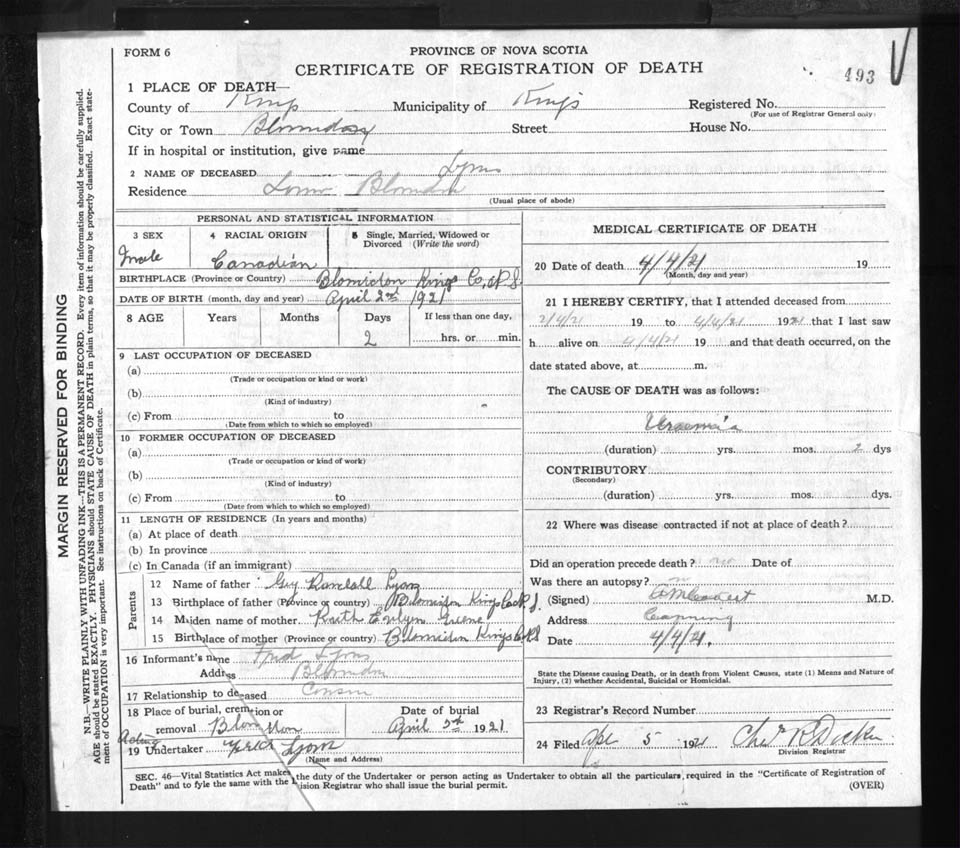 FORM 6
PROVINCE OF NOVA SCOTIA
CERTIFICATE OF REGISTRATION OF DEATH
493
1 PLACE OF DEATH—
County of Kings Municipality of Kings Registered No.
(For use of Registrar General only)
City or Town Street House No.
If in hospital or institution, give name
2 NAME OF DECEASED Lyons
Residence Blomidon
(Usual place of abode)
PERSONAL AND STATISTICAL INFORMATION
3 SEX 4 RACIAL ORIGIN 5 Single, Married, Widowed or Divorced (Write the word)
Male Canadian
BIRTHPLACE (Province or Country) Blomidon Kings Co, N.S.
DATE OF BIRTH (month, day and year) April 2nd 1921
8 AGE Years Months Days If less than one day,
2 hrs. or min.
9 LAST OCCUPATION OF DECEASED
(a)
(Trade or occupation or kind or work)
(b)
(Kind of industry)
(c) From to
(Date from which to which so employed)
10 FORMER OCCUPATION OF DECEASED
(a)
(Trade or occupation or kind of work)
(b)
(Kind of industry)
(c) From to
(Date from which to which so employed)
11 LENGTH OF RESIDENCE (In years and months)
(a) At place of death
(b) In province
(c) In Canada (if an immigrant)
Parents
12 Name of father Guy Randall Lyons
13 Birthplace of father (Province or country) Blomidon Kings Co N.S.
14 Maiden name of mother Ruth Evelyn Greene
15 Birthplace of mother (Province or country) Blomidon Kings Co N.S
16 Informant's name Fred Lyons
Address Blomidon
17 Relationship to deceased Cousin
18 Place of burial, cremation or
removal Blomidon
Date of burial
April 1921
Acting
19 Undertaker Lyons
(Name and Address)
MEDICAL CERTIFICATE OF DEATH
20 Date of death 4/4/21 19
(Month, day and year)
21 I HEREBY CERTIFY, that I attended deceased from
2/4/21 19 to 4/4/21 1921 that I last saw
h alive on 4/4/21 19 and that death occurred, on the
date stated above, at m.
The CAUSE OF DEATH was as follows:
Uraemia
(duration) yrs. mos. 2 dys
CONTRIBUTORY
(Secondary)
(duration) yrs. mos. dys.
22 Where was disease contracted if not at place of death?
Did an operation precede death? no Date of
Was there an autopsy?
(Signed) M.D.
Address Canning
Date 4/4/21.
State the Disease causing Death, or in death from Violent Causes, state (1) Means and Nature of
Injury, (2) whether Accidental, Suicidal or Homicidal.
23 Registrar's Record Number
24 Filed Apr 5 1921
Division Registrar
SEC. 46—Vital Statistics Act makes the duty of the Undertaker or person acting as Undertaker to obtain all the particulars, required in the "Certificate of Registration of
Death" and to fyle the same with the Division Registrar who shall issue the burial permit.
(OVER)
MARGIN RESERVED FOR BINDING
N.B.—WRITE PLAINLY WITH UNFADING INK—THIS IS A PERMANENT RECORD. Every item of information should be carefully supplied.
AGE should be stated EXACTLY. PHYSICIANS should STATE CAUSE OF DEATH in plain terms, so that it may be properly classified. Exact state-
ment of OCCUPATION is very important. See instructions on back of Certificate.